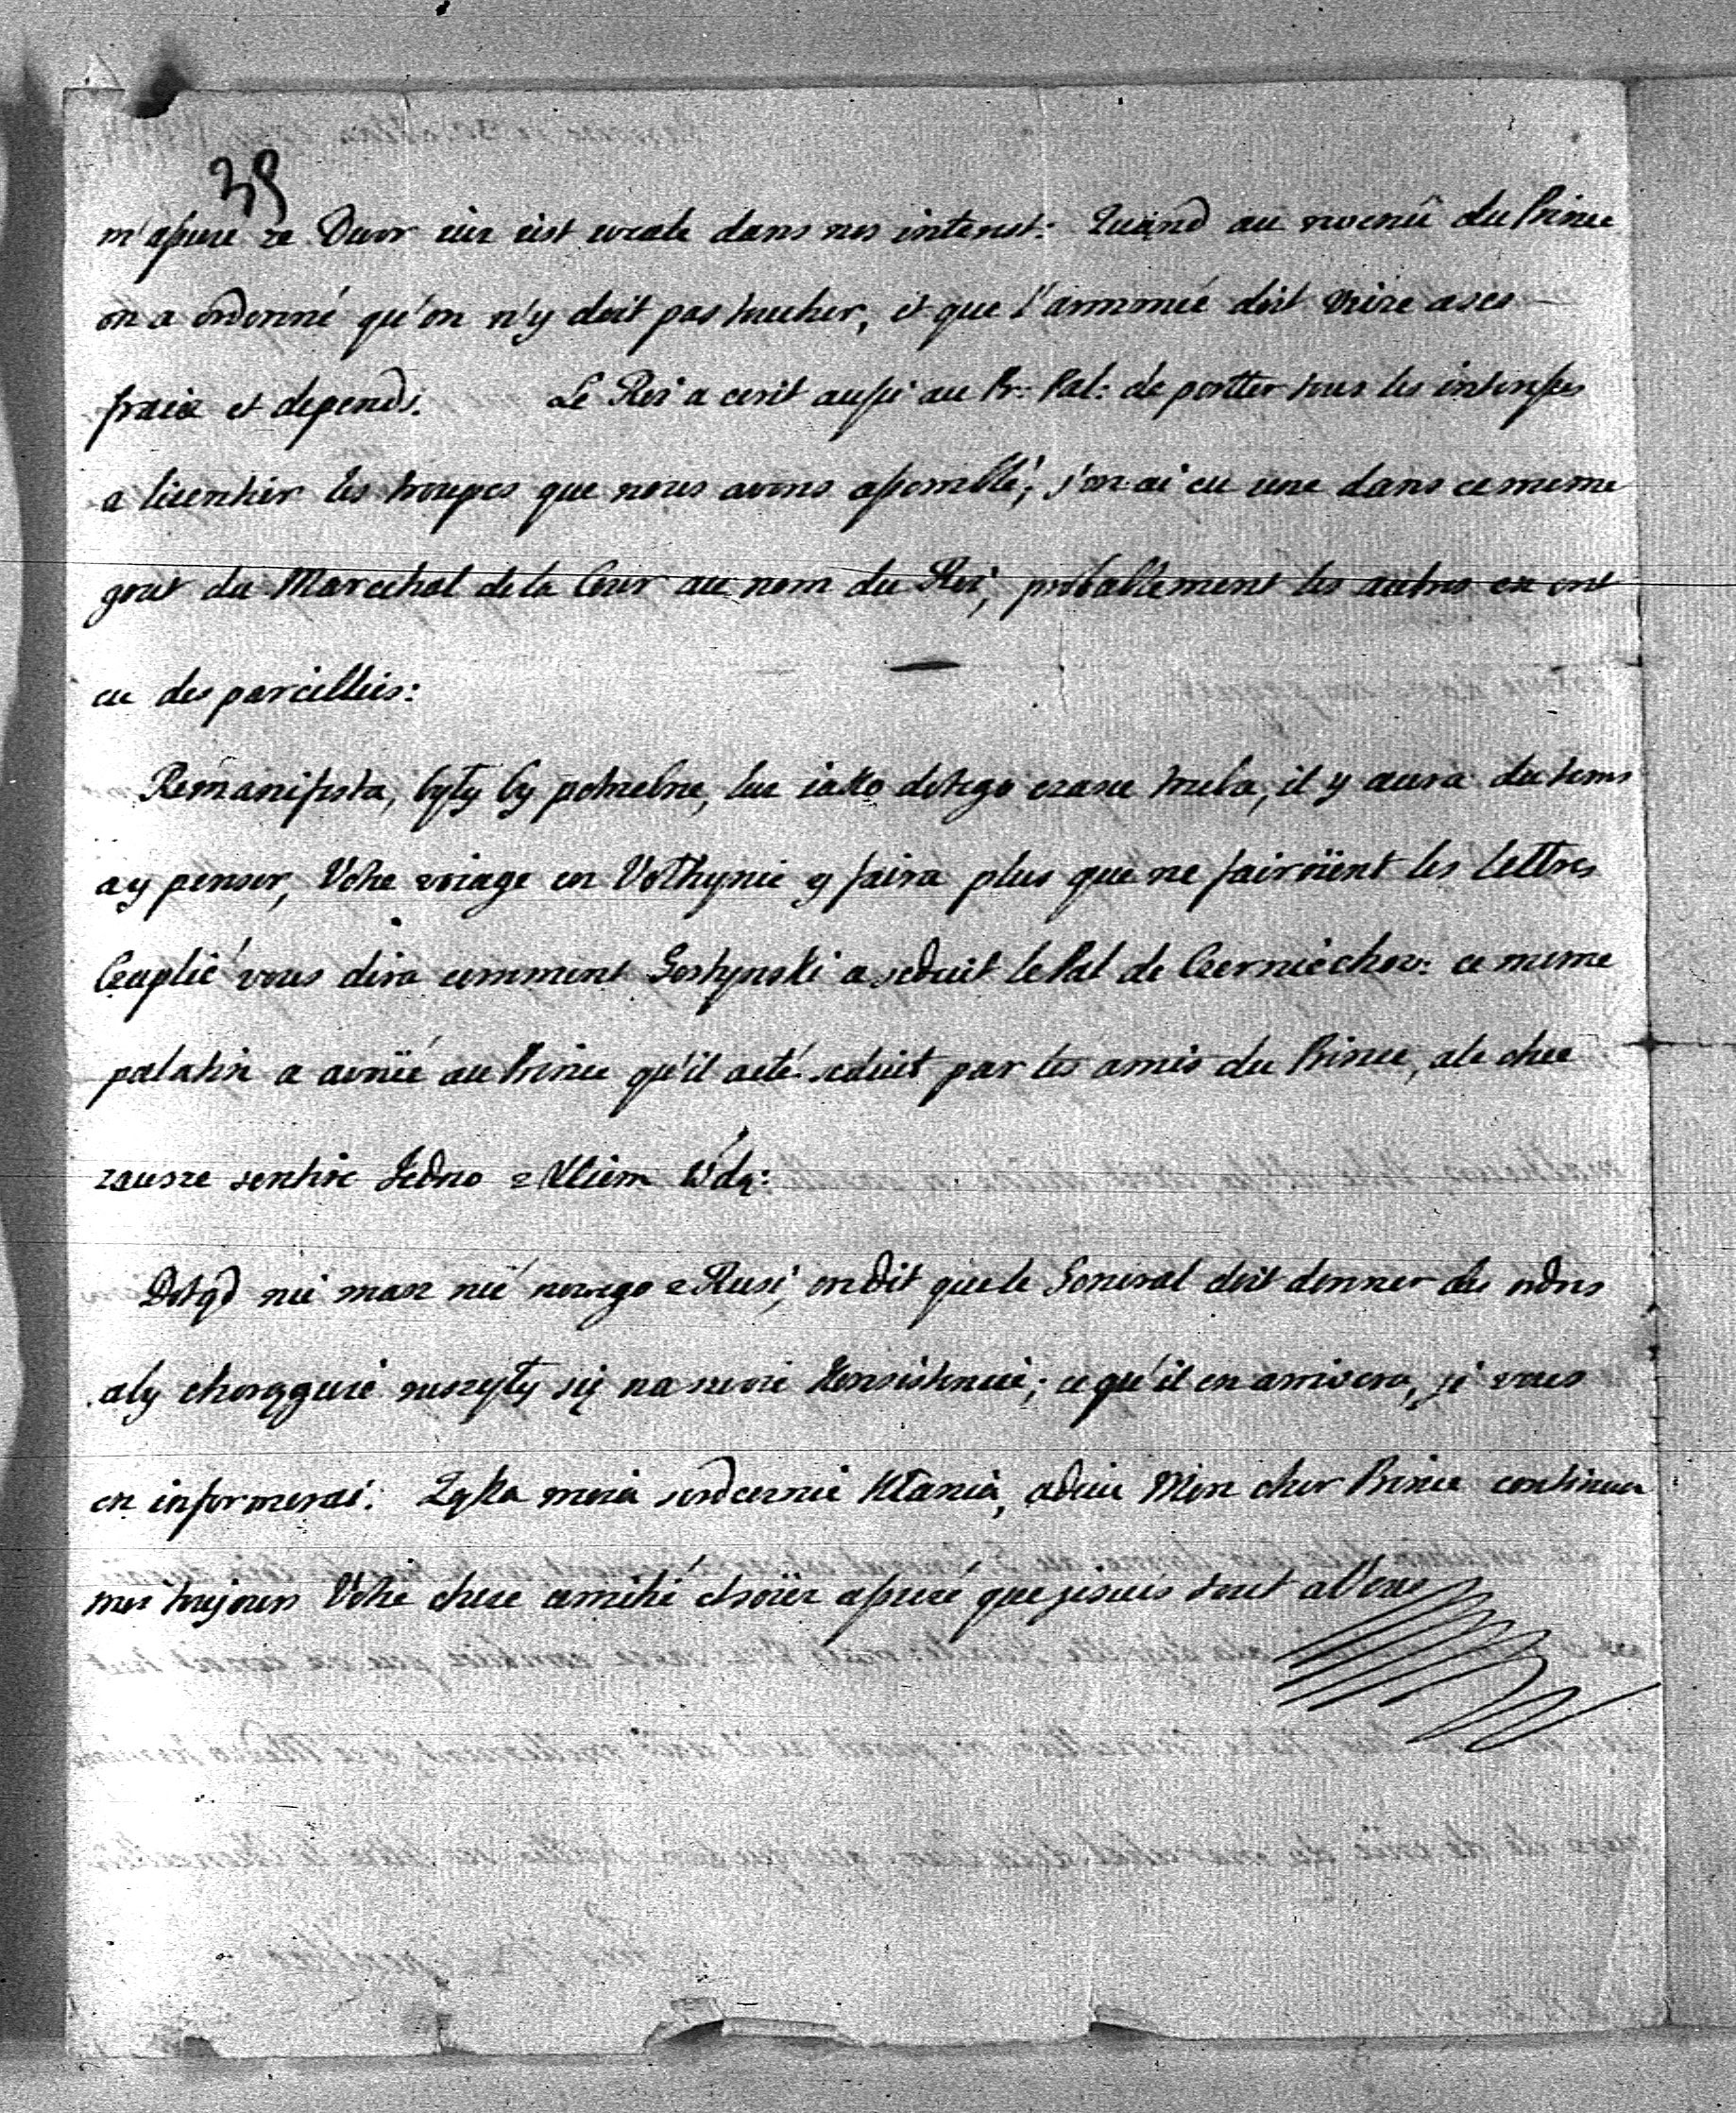 39
m'assure ze Dwor iuz iest wcale dans nos interest: Quand au revenû du Prince
on a ordonné qu'on n'y doit pas toucher, et que l'armmée doit vivre a ses
fraix et depends. Le Roi a ecrit aussi au Pr: Pal: de portter tous les
a licentier les trouppes que nous avons assemblé; j'en ai eu une dans ce meme
gout du Marechal de la Cour au nom du Roi, probablement les autres en ont
eu des pareilles:
Remanifesta, byly by potrzebne, lecz iako do tego czasu trzeba, il y aura du tems
a y penser, Votre voiage en Volhynie y faira plus que ne fairoient les lettres
Czaplic vous dira comment Gostynski a seduit le Pal de Czerniechow: ce meme
palatin a avoüé au Prince qu'il a eté seduit par les amis du Prince, ale chce
zawsze Jedno z Wda:
Dotąd nie masz nic nowego z Rusi, on dit que le General doit donner des ordres
aby chorągwie ruszyły się na swoie Konsistencie; ce qu'il en arrivera, je vous
en informerai. Żąka moia serdecznie kłania, adieu Mon cher Prince continuez
moi toujours Votre chere amitié et soiéz assuré que je suis tout a Vous